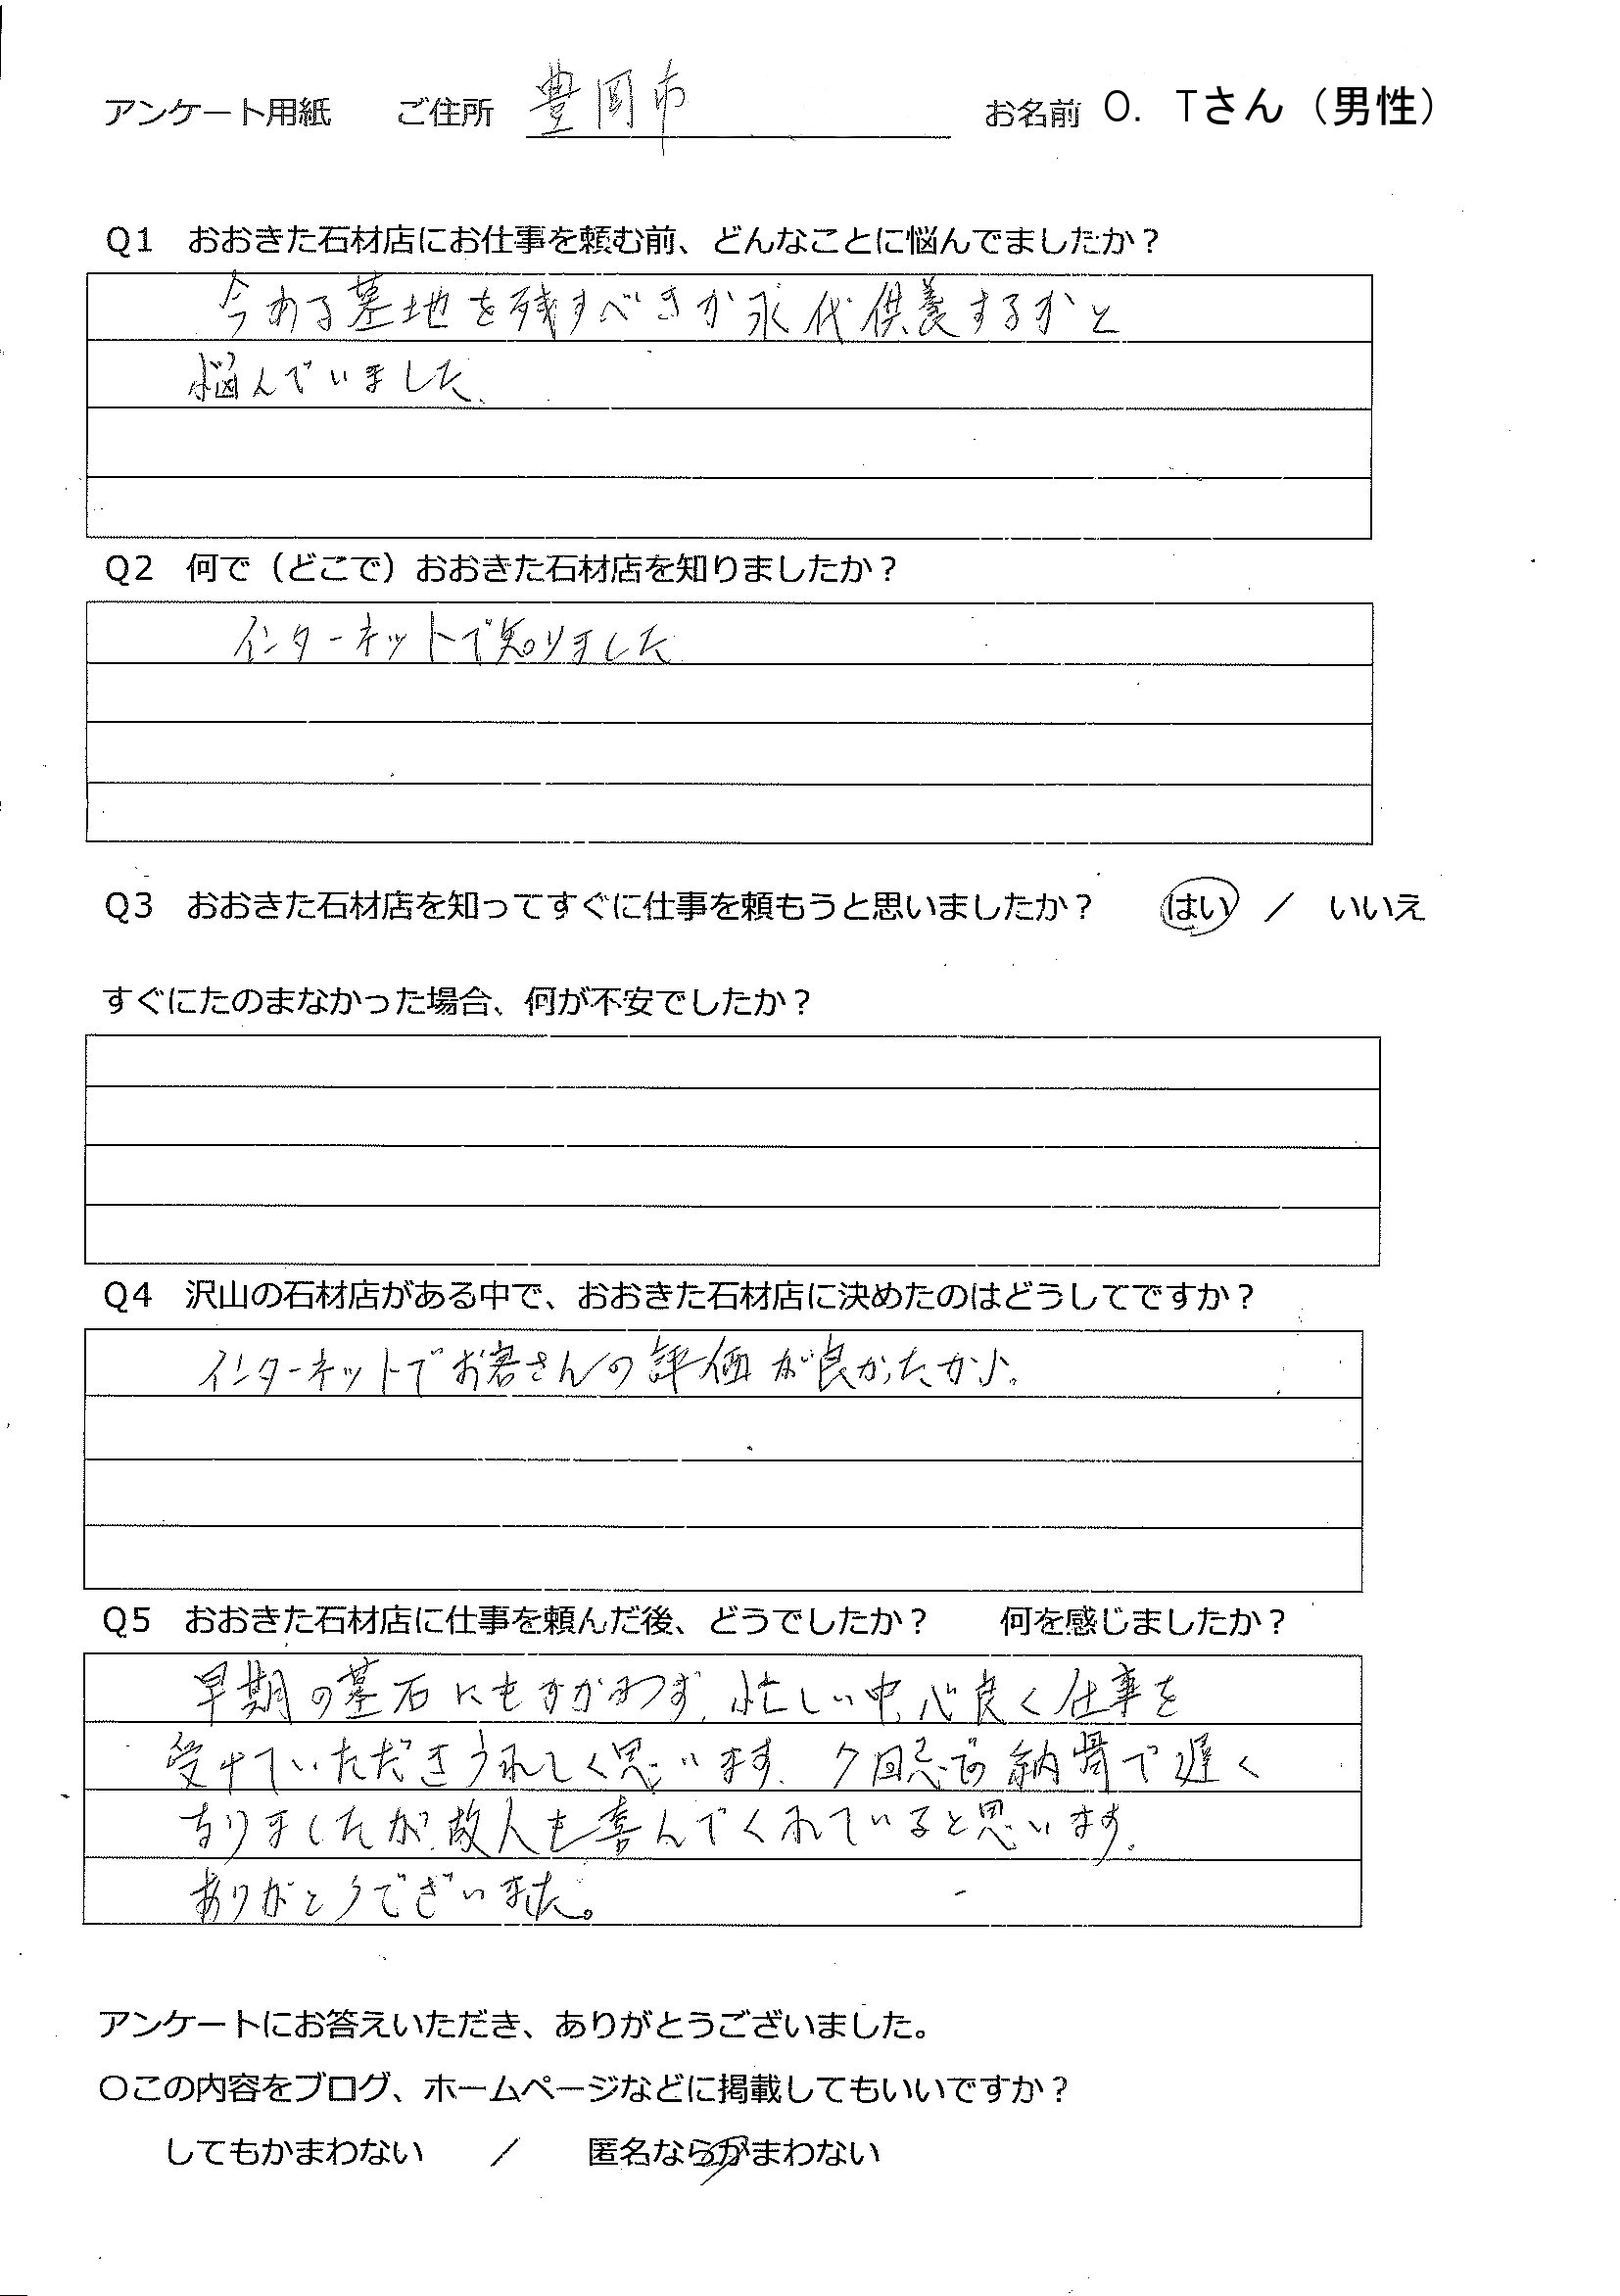 アンケート用紙 ご住所 豊岡市 お名前 O. Tさん（男性）
Q1 おおきた石材店にお仕事を頼む前、どんなことに悩んでましたか？
今ある墓地を残すべきか永代供養するかと
悩んでいました.
Q2 何で（どこで）おおきた石材店を知りましたか？
インターネットで知りました
Q3 おおきた石材店を知ってすぐに仕事を頼もうと思いましたか？ はい ／ いいえ
すぐにたのまなかった場合、何が不安でしたか？
Q4 沢山の石材店がある中で、おおきた石材店に決めたのはどうしてですか？
インターネットでお客さんの評価が良かったから。
Q5 おおきた石材店に仕事を頼んだ後、どうでしたか？ 何を感じましたか？
早期の墓石にもかかわず、忙しい中、心良く仕事を
受けていただきうれしく思います. 7回忌での納骨で遅く
なりましたが、故人も喜んでくれていると思います.
ありがとうございました。
アンケートにお答えいただき、ありがとうございました。
〇この内容をブログ、ホームページなどに掲載してもいいですか？
してもかまわない ／ 匿名ならかまわない